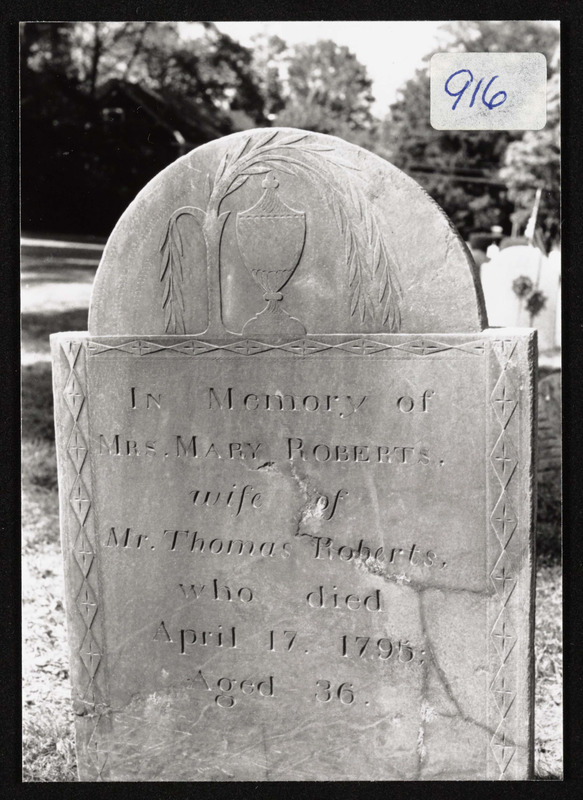 916
In Memory of
Mrs. Mary Roberts,
wife of
Mr. Thomas Roberts,
who died
April 17, 1795;
Aged 36.